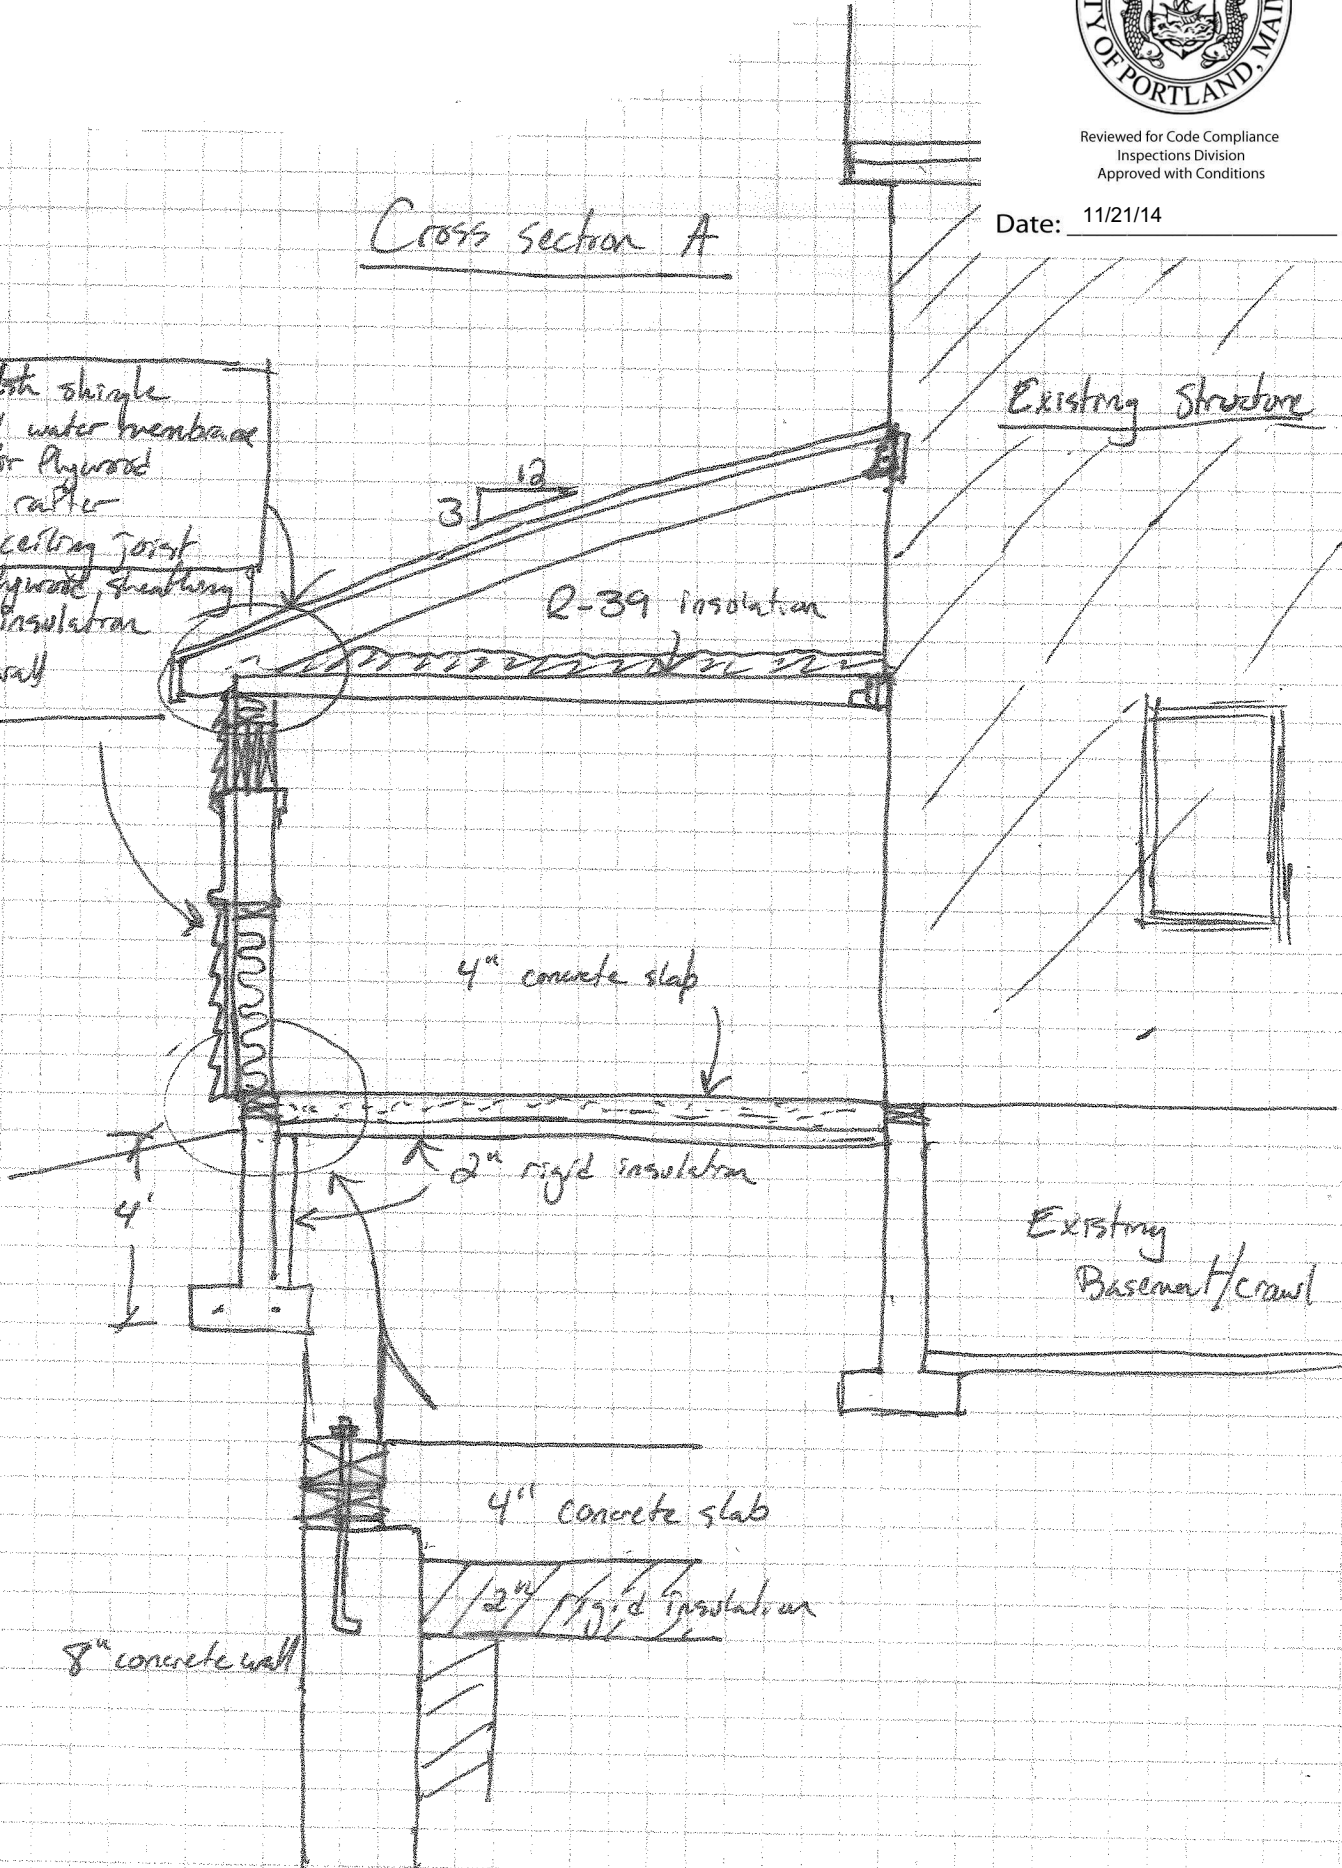 CITY OF PORTLAND, MAI
Reviewed for Code Compliance
Inspections Division
Approved with Conditions
Date: 11/21/14
Cross section A
shingle
water membrane
Plywood
rafter
ceiling joist
sheathing
insulation
wall
Existing Structure
12
3
R-39 insulation
4" concrete slab
2" rigid insulation
4'
Existing
Basement/crawl
4" concrete slab
2" rigid insulation
8" concrete wall